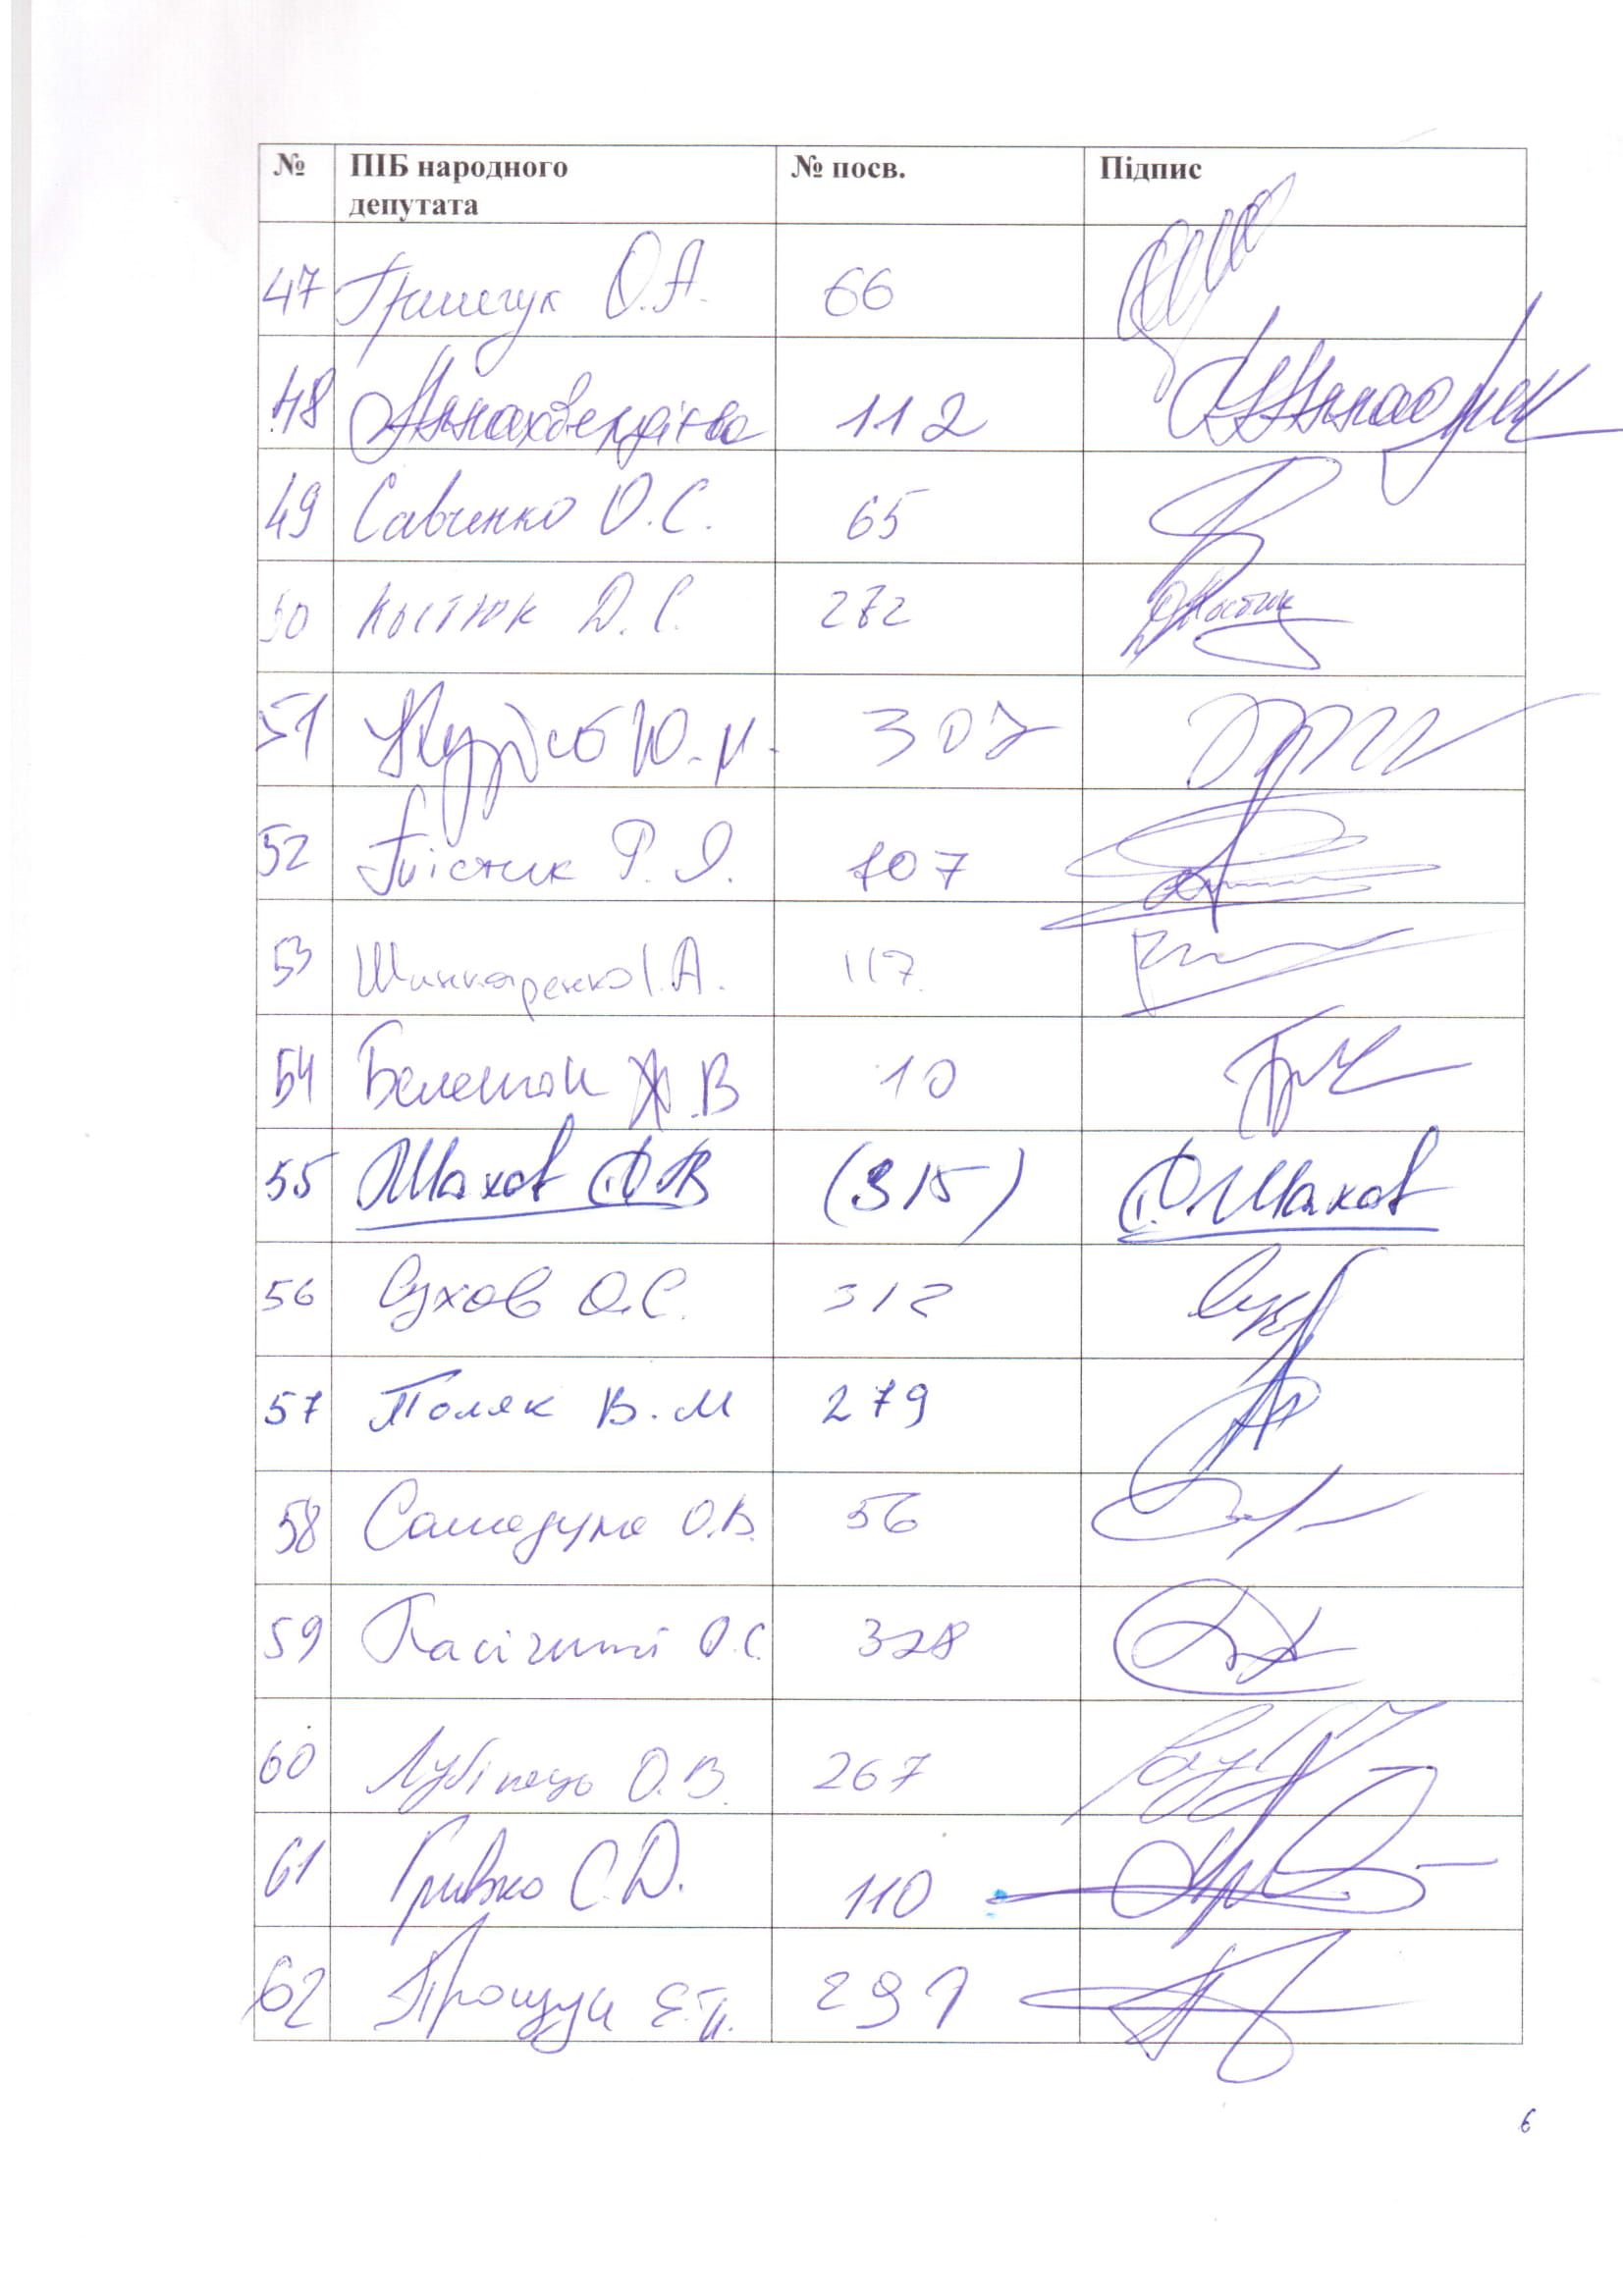 № ПІБ народного депутата № посв. Підпис
47 Грищук О.А. 66
48 Аллахвердієва 112
49 Савченко О.С. 65
50 Костюк Д.С. 272
51 Ю.М. 307
52 Р.Я. 107
53 Шинкаренко І.А. 117
54 В 10
55 Шахов С.В (315) С.Шахов
56 Сухов О.С. 312 Сух
57 Поляк В.М 279
58 О.В. 56
59 Пасічний О.С. 328
60 Лубінець О.В. 267
61 Гривко С.Д. 110
62 Прощук Е.П. 291
6